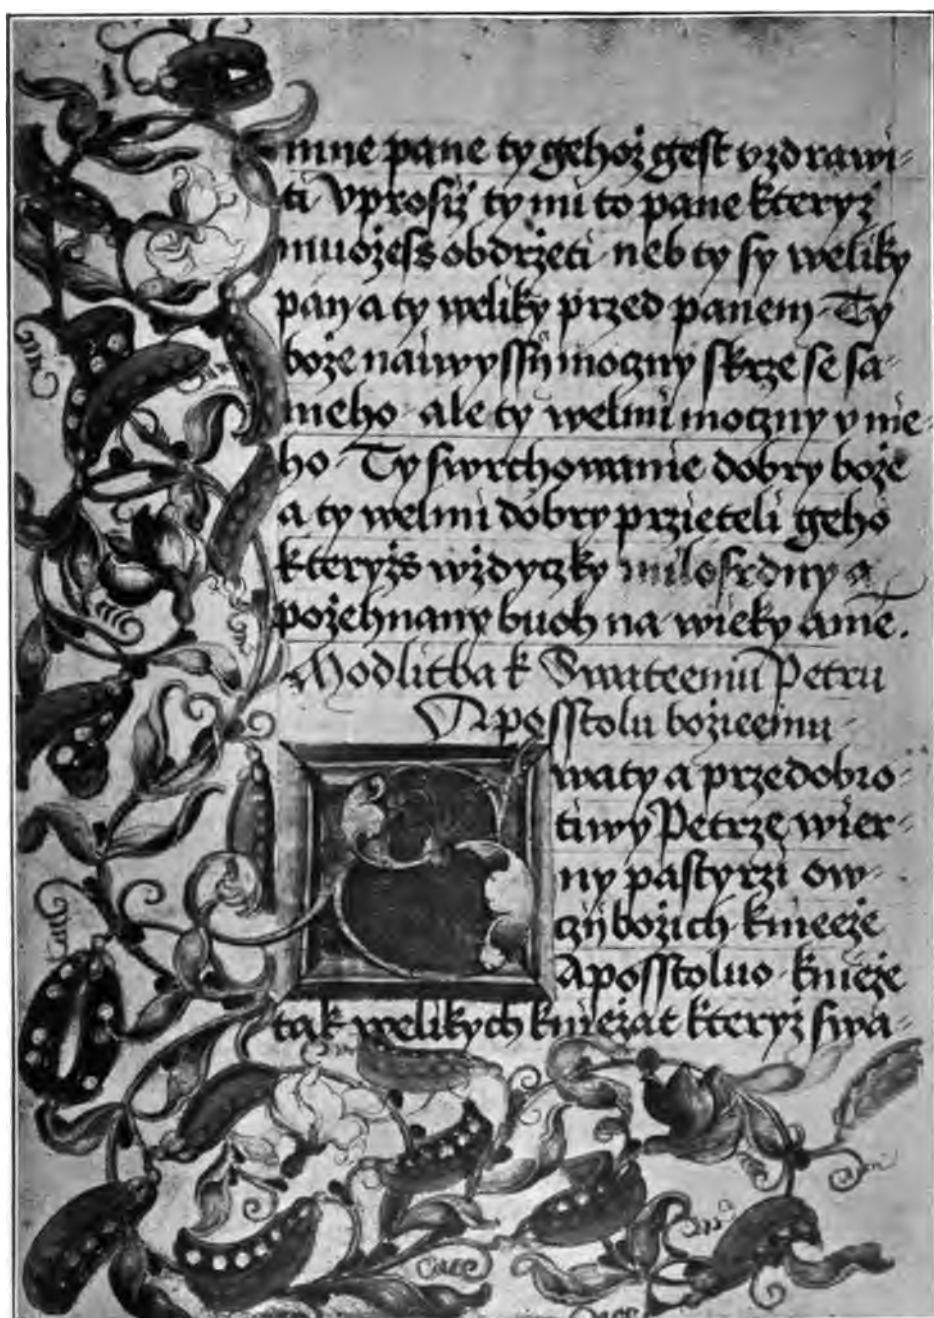 mne pane ty gehož gest vzdrawi-
ti Vprosiž ty mi to pane kteryž
muožeſs obdržeti neb ty ſy weliky
pan a ty weliky przed panem Ty
bože naiwyſſij moczny ſkrze ſe ſa-
meho ale ty welmi moczny v nie-
ho Ty ſwrchowanie dobry bože
a ty welmi dobry przieteli geho
kteryžs wždyczky miloſrdny a
požehnany buoh na wieky ame.
Modlitba k Swateemu Petru
Apoſſtolu božieemu
S waty a przedobro-
tiwy Petrze wier-
ny paſtyrzi ow-
czij božich knieeže
Apoſſtoluo knieže
tak welikych kniežat kteryž ſwa-